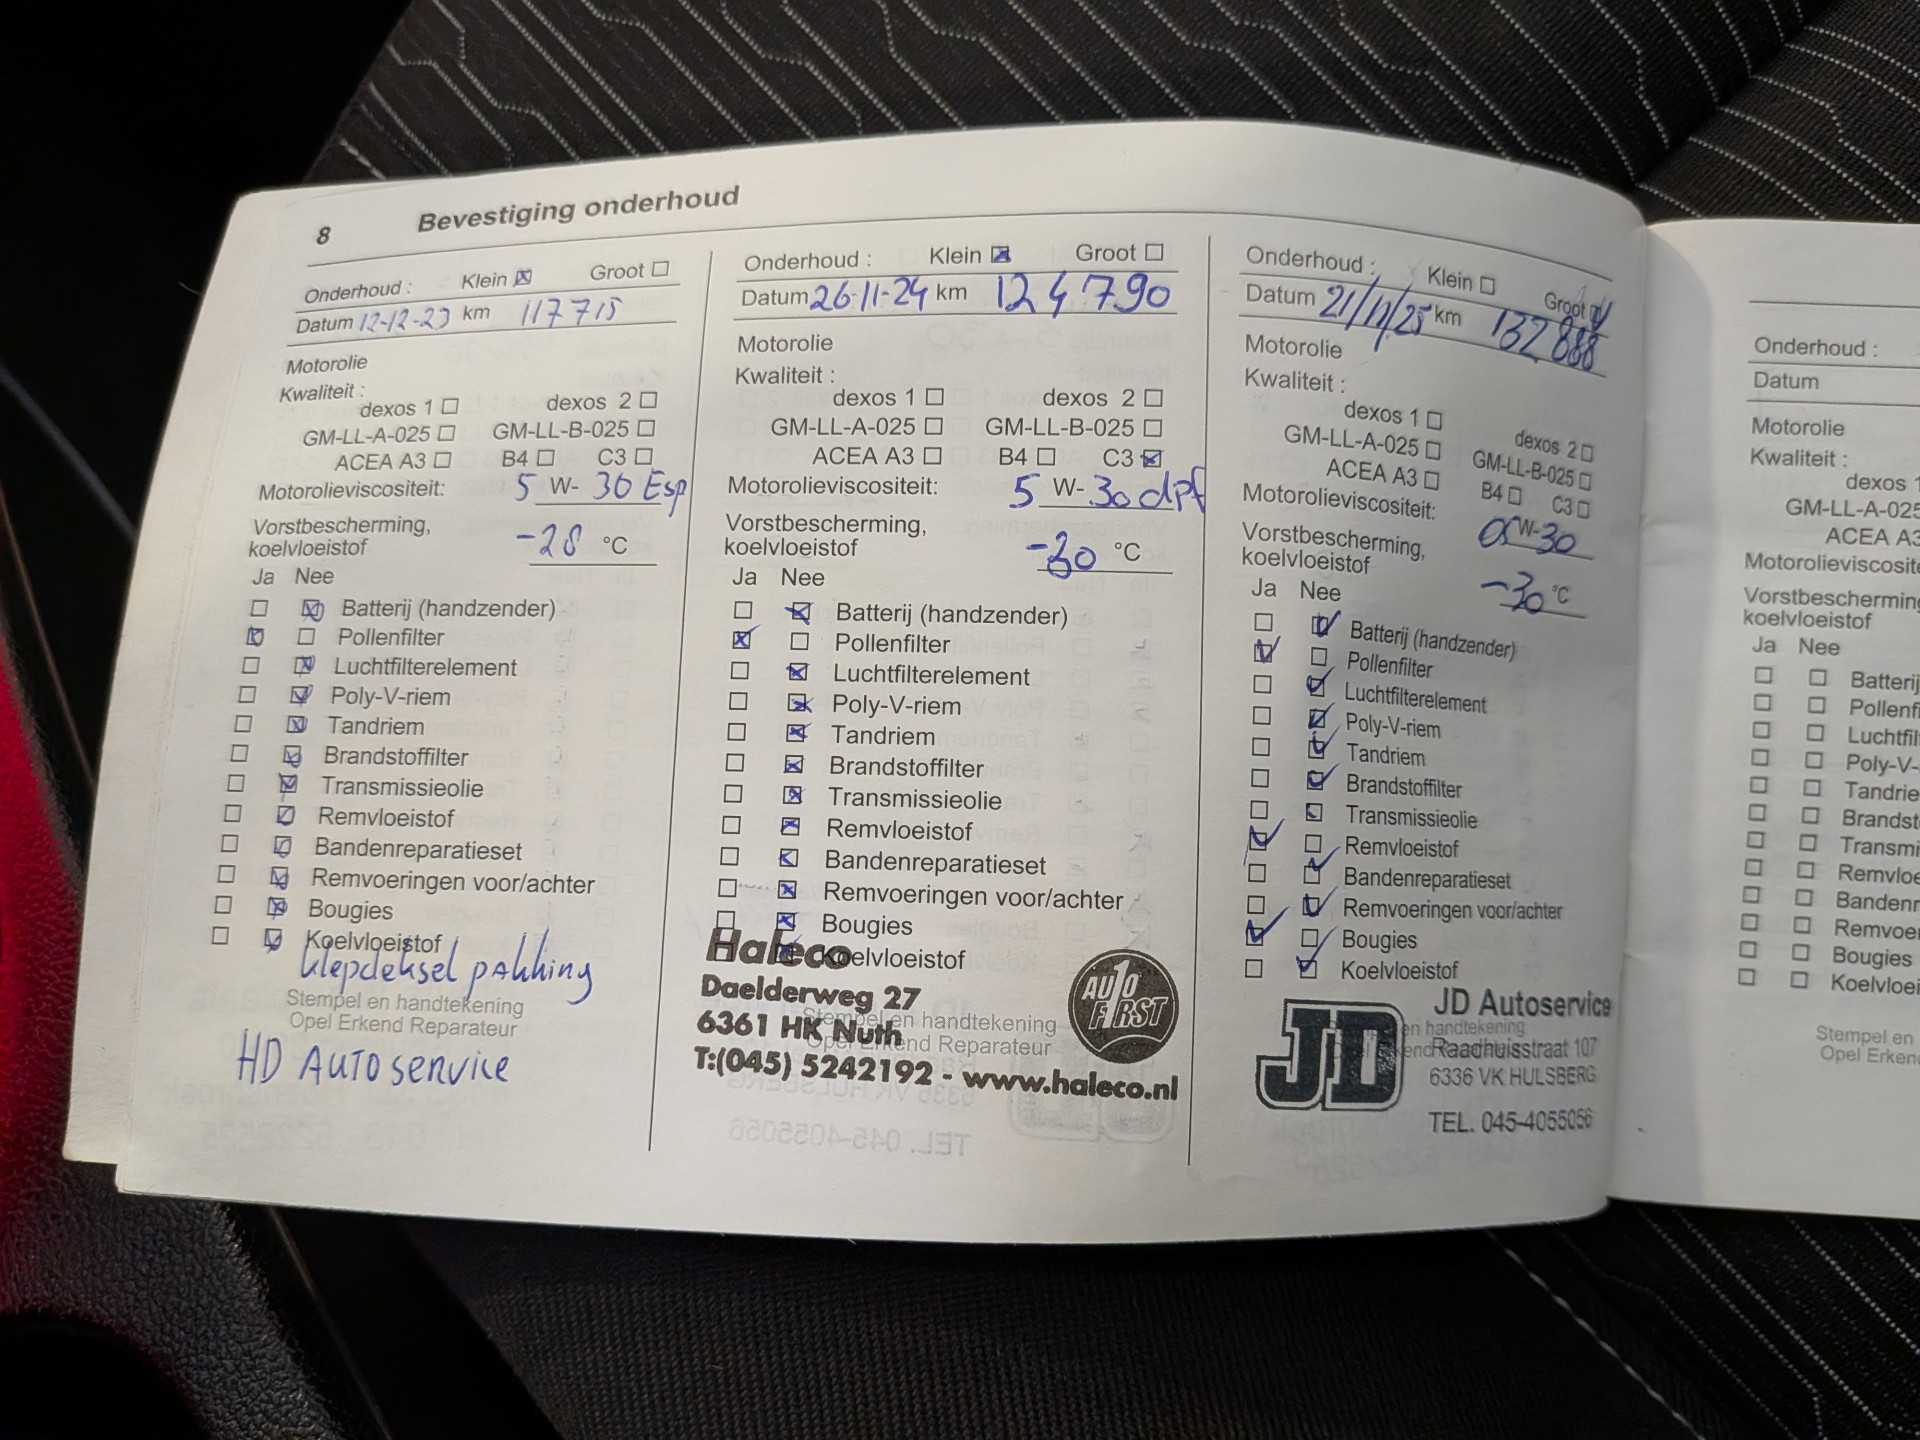 8 Bevestiging onderhoud
Onderhoud : Klein Groot
Datum 12-12-23 km 117715
Motorolie
Kwaliteit :
dexos 1 dexos 2
GM-LL-A-025 GM-LL-B-025
ACEA A3 B4 C3
Motorolieviscositeit: 5 W- 30 Esp
Vorstbescherming,
koelvloeistof -28 °C
Ja Nee
Batterij (handzender)
Pollenfilter
Luchtfilterelement
Poly-V-riem
Tandriem
Brandstoffilter
Transmissieolie
Remvloeistof
Bandenreparatieset
Remvoeringen voor/achter
Bougies
Koelvloeistof
klepdeksel pakking
Stempel en handtekening
Opel Erkend Reparateur
HD Autoservice
Onderhoud : Klein Groot
Datum 26-11-24 km 124790
Motorolie
Kwaliteit :
dexos 1 dexos 2
GM-LL-A-025 GM-LL-B-025
ACEA A3 B4 C3
Motorolieviscositeit: 5 W- 30 dpf
Vorstbescherming,
koelvloeistof -30 °C
Ja Nee
Batterij (handzender)
Pollenfilter
Luchtfilterelement
Poly-V-riem
Tandriem
Brandstoffilter
Transmissieolie
Remvloeistof
Bandenreparatieset
Remvoeringen voor/achter
Bougies
Koelvloeistof
Haleco
Daelderweg 27
Stempel en handtekening
6361 HK Nuth
Opel Erkend Reparateur
T:(045) 5242192 - www.haleco.nl
AUTO FIRST
Onderhoud : Klein Groot
Datum 21/11/25 km 132888
Motorolie
Kwaliteit :
dexos 1 dexos 2
GM-LL-A-025 GM-LL-B-025
ACEA A3 B4 C3
Motorolieviscositeit: W-30
Vorstbescherming,
koelvloeistof -30 °C
Ja Nee
Batterij (handzender)
Pollenfilter
Luchtfilterelement
Poly-V-riem
Tandriem
Brandstoffilter
Transmissieolie
Remvloeistof
Bandenreparatieset
Remvoeringen voor/achter
Bougies
Koelvloeistof
JD JD Autoservice
en handtekening
Raadhuisstraat 107
6336 VK HULSBERG
TEL. 045-4055056
Onderhoud :
Datum
Motorolie
Kwaliteit :
dexos 1
GM-LL-A-025
ACEA A3
Motorolieviscosite
Vorstbescherming
koelvloeistof
Ja Nee
Batterij
Pollenfi
Luchtfil
Poly-V-
Tandrie
Brandst
Transmi
Remvloe
Banden
Remvoe
Bougies
Koelvloei
Stempel en
Opel Erken